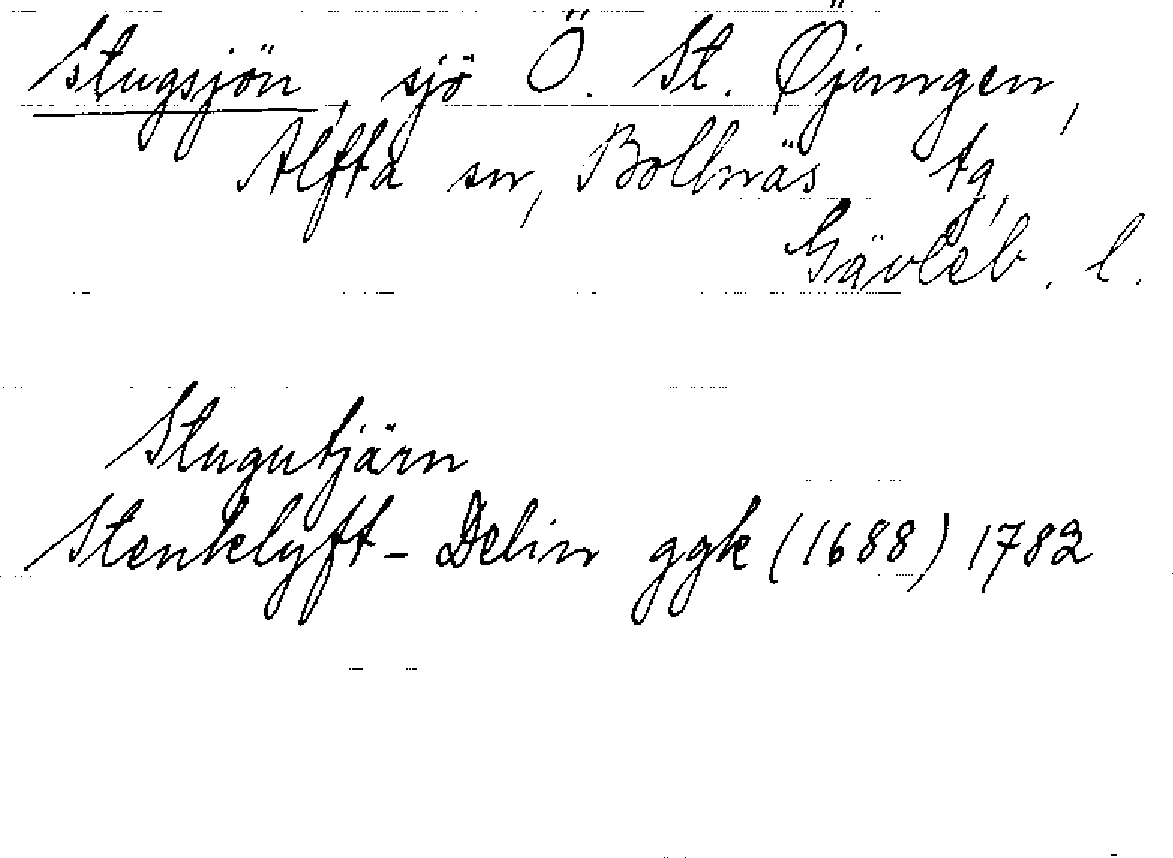 Stugsjön, sjö Ö. St. Öjungen,
Alfta sn, Bollnäs tg,
Gävleb. l.
Stugutjärn
Stenklyft-Delin ggk (1688) 1782